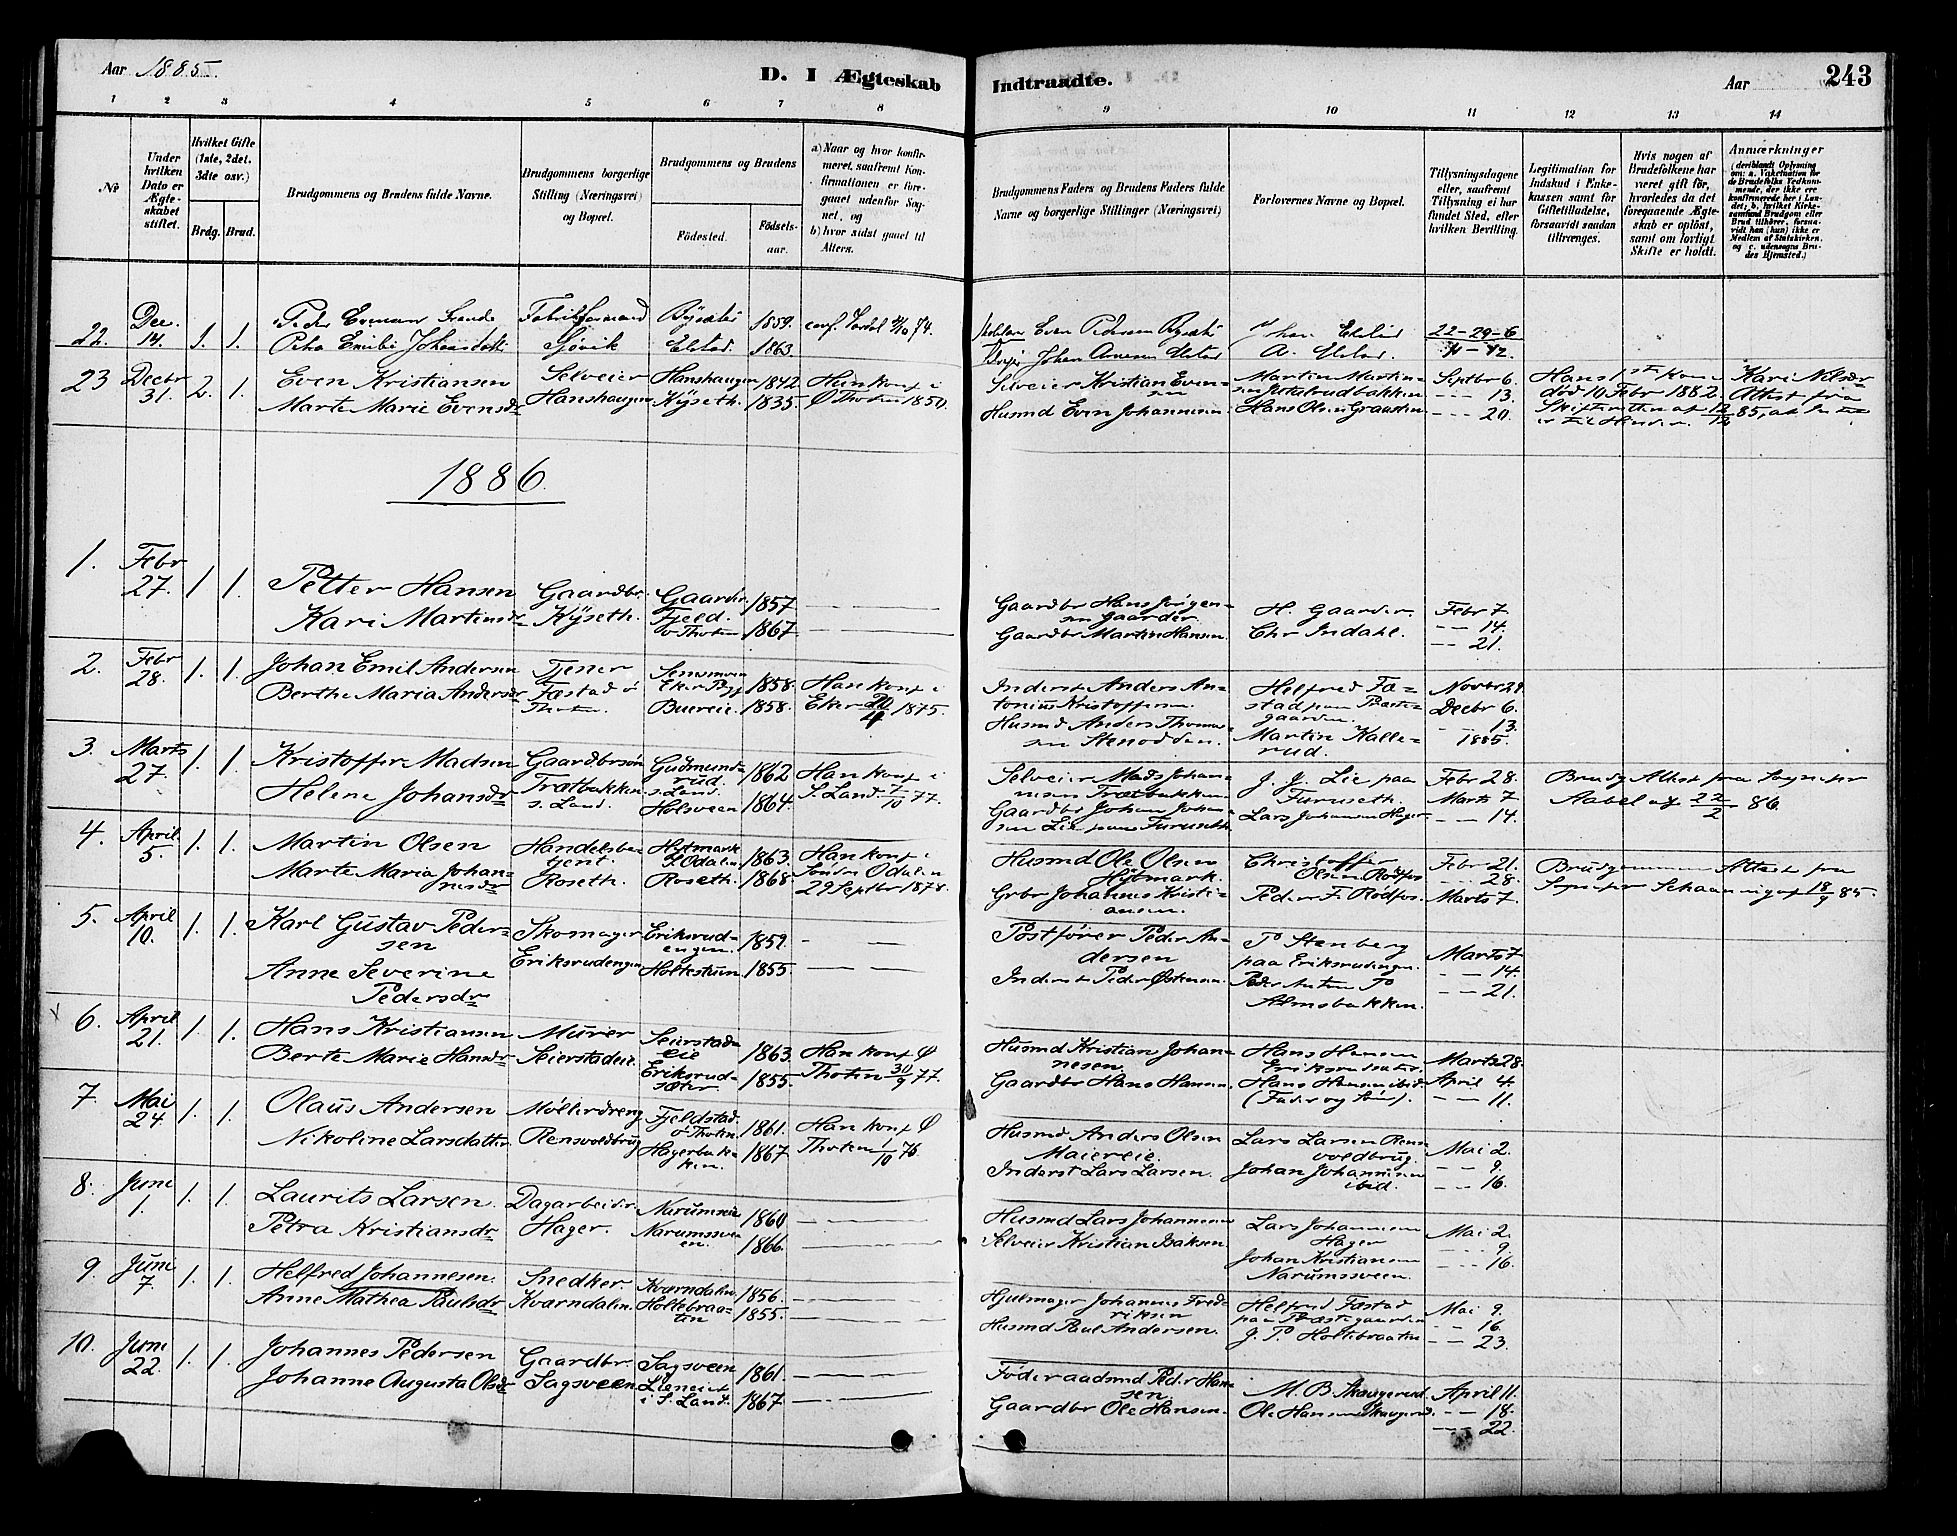 Aar 1885.
D. I Ægteskab
Indtraadte.
Aar
243
1 2 3 4 5 6 7 8 9 10 11 12 13 14
No
Under hvilken Dato er Ægteskabet stiftet.
Hvilket Gifte (1ste, 2det, 3die osv.)
Brdg. Brud.
Brudgommens og Brudens fulde Navne.
Brudgommens borgerlige Stilling (Næringsvei) og Bopæl.
Brudgommens og Brudens
Födested.
Födselsaar.
a) Naar og hvor konfirmeret, saafremt Konfirmationen er foregaaet udenfor Sognet, og
b) hvor sidst gaaet til Alters.
Brudgommens Faders og Brudens Faders fulde Navne og borgerlige Stillinger (Næringsvei)
Forlovernes Navne og Bopæl.
Tillysningsdagene eller, saafremt Tillysning ei har fundet Sted, efter hvilken Bevilling.
Legitimation for Indskud i Enkekassen samt for Giftetilladelse, forsaavidt saadan tiltrænges.
Hvis nogen af Brudefolkene har været gift før, hvorledes da det foregaaende Ægteskab er opløst, samt om lovligt Skifte er holdt.
Anmærkninger
22. Dec. 14. 1. 1.
Fabrikformand 1859.
Gjövik Elstad. 1863.
Even Pedersen
A. Elstad.
22-29-6
23 Decbr 31. 2. 1.
Even Kristiansen Selveier Hanshaugen 1842 Hun konf i
Marte Marie Evensdr Hanshaugen Kÿseth. 1835. Ø Thoten 1850.
Selveier Kristian Evensen Martin Martin- Septbr 6.
- - - 13.
Husmd Even Johannesen Hans Olsen - - - 20.
Hans 1ste Kone Kari Nilsdr
död 10 Febr 1882. Attest fra
Skifteretten af 12/12 85,
1886.
1. Febr 27. 1 1.
Petter Hansen Gaardbr. Gaarder 1857 - - -
Kari Martinsdr Kÿseth. Fjeld. Ø Thoten 1867. - - -
Gaardbr Hans Jörgensen Gaarder H. Gaarder Febr 7.
- - 14.
Gaardbr Martin Hansen. Chr Indahl. - - 21.
2. Febr 28. 1. 1.
Johan Emil Andersen Tjener 1858. Han konf i
Berthe Maria Andersdr Fæstad Ø Thoten. Buereie. 1858. Eker 20/4 1875.
Inderst Anders Antonius Kristoffersen. Helfred Fæstad paa Præstegaarden. Novbr 29
Decbr 6.
Husmd Anders Thomassen Stenodden. Martin Kallerud. - 13. 1885.
3. Marts 27. 1. 1.
Kristoffer Madsen Gaardbrsön Gudmundrud. s. Land. 1862 Han konf i
Helene Johansdr Trætbakken s. Land. Holsveen 1864. S. Land. 7/10 77.
Selveier Mads Johannesen Trætbakken J. J. Lie paa Furuseth. Febr 28.
Marts 7
Gaardbr Johan Johansen Lie paa Furuseth Lars Johannesen Hager - - 14.
Brudg Attest fra Sognepr
Aabel af 22/2 86
4. April 5. 1. 1.
Martin Olsen Handelsbetjent. Hytmark S. Odalen 1863. Han konf i
Marte Maria Johannesdr Roseth. Roseth. 1868. Söndre Odalen 29 Septbr 1878.
Husmd Ole Olsen Hytmark. Christoffer Olsen Rödfos Febr 21.
- - 28.
Grbr Johannes Kristiansen. Peder F. Rödfos. Marts 7.
Brudgommens Attest fra
Sognepr Schaanning af 18/9 85.
5. April 10. 1. 1.
Karl Gustav Pedersen Skomager Eriksrudengen. 1859. - - -
Anne Severine Pedersdr Eriksrudengen Holtestuen 1855. - - -
Postförer Peder Andersen P Stenberg paa Eriksrudengen. Marts 7
- - 14.
Inderst Peder Östensen. Peder Anton P Almsbakken. - - 21.
6. April 21. 1. 1.
Hans Kristiansen Murer Seierstadeie 1863. Han konf Ø
Berte Marie Hansdr Seierstadeie. Eriksrudsæter 1855. Thoten 30/9 77.
Husmd Kristian Johannesen. Hans Hansen Eriksrudsæter. Marts 28.
Gaardbr Hans Hansen. Hans Hansen ibid. April 4.
(Fader og Sön). - - 11.
7. Mai 24. 1. 1.
Olaus Andersen Möllerdreng Fjeldstad. Ø Thoten. 1861. Han konf Ø
Nikoline Larsdatter. Rensvoldbrug Hagerbakken. 1867 Thoten 1/10 76
Husmd Anders Olsen Maiereie. Lars Larsen Rensvoldbrug Mai 2.
- - 9.
Inderst Lars Larsen. Johan Johannesen ibid. - - 16.
8. Juni 1. 1. 1.
Laurits Larsen. Dagarbeider. Narumseie 1860 - - -
Petra Kristiansdr Hager. Narumssveen. 1866. - - -
Husmd Lars Johannesen Lars Johannesen Hager Mai 2.
- - 9
Selveier Kristian Isaksen Johan Kristiansen Narumssveen. - - 16.
9. Juni 7. 1. 1.
Helfred Johannesen. Snedker. Kværndalen 1856. - - -
Anne Mathea Paulsdr Kværndalen. Holtebraaten 1855. - - -
Hjulmager Johannes Fredriksen Helfred Fæstad paa Præstegaarden Mai 9.
- - 16.
Husmd Paul Andersen. J. P. Holtebraaten - - 23.
10. Juni 22. 1. 1.
Johannes Pedersen Gaardbr. Sagsveen 1861. - - -
Johanne Augusta Olsdr Sagsveen. Lieneiet i S. Land. 1867. - - -
Föderaadsmd Peder Hansen. M. B. Skaugerud. April 11.
- - 18.
Gaardbr Ole Hansen. Ole Hansen Skaugerud. - - 22.